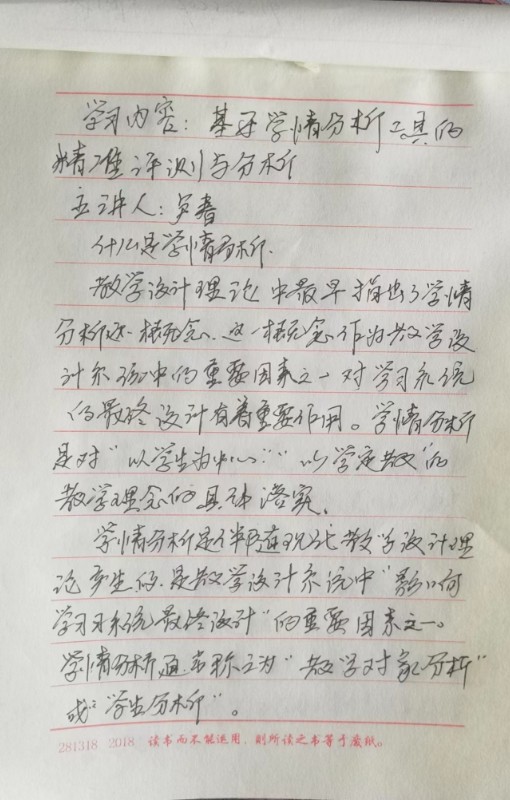 学习内容：基于学情分析工具的
精准评测与分析
主讲人：罗春
什么是学情分析.
教学设计理论中最早指出了学情
分析这一概念.这一概念作为教学设
计系统中的重要因素之一对学习系统
的最终设计有着重要作用。学情分析
是对"以学生为中心""以学定教"的
教学理念的具体落实。
学情分析是伴随在现代教学设计理
论产生的.是教学设计系统中"影响
学习系统最终设计"的重要因素之一。
学情分析通常称之为"教学对象分析"
或"学生分析"。
281318 2018 读书而不能运用，则所读之书等于废纸。